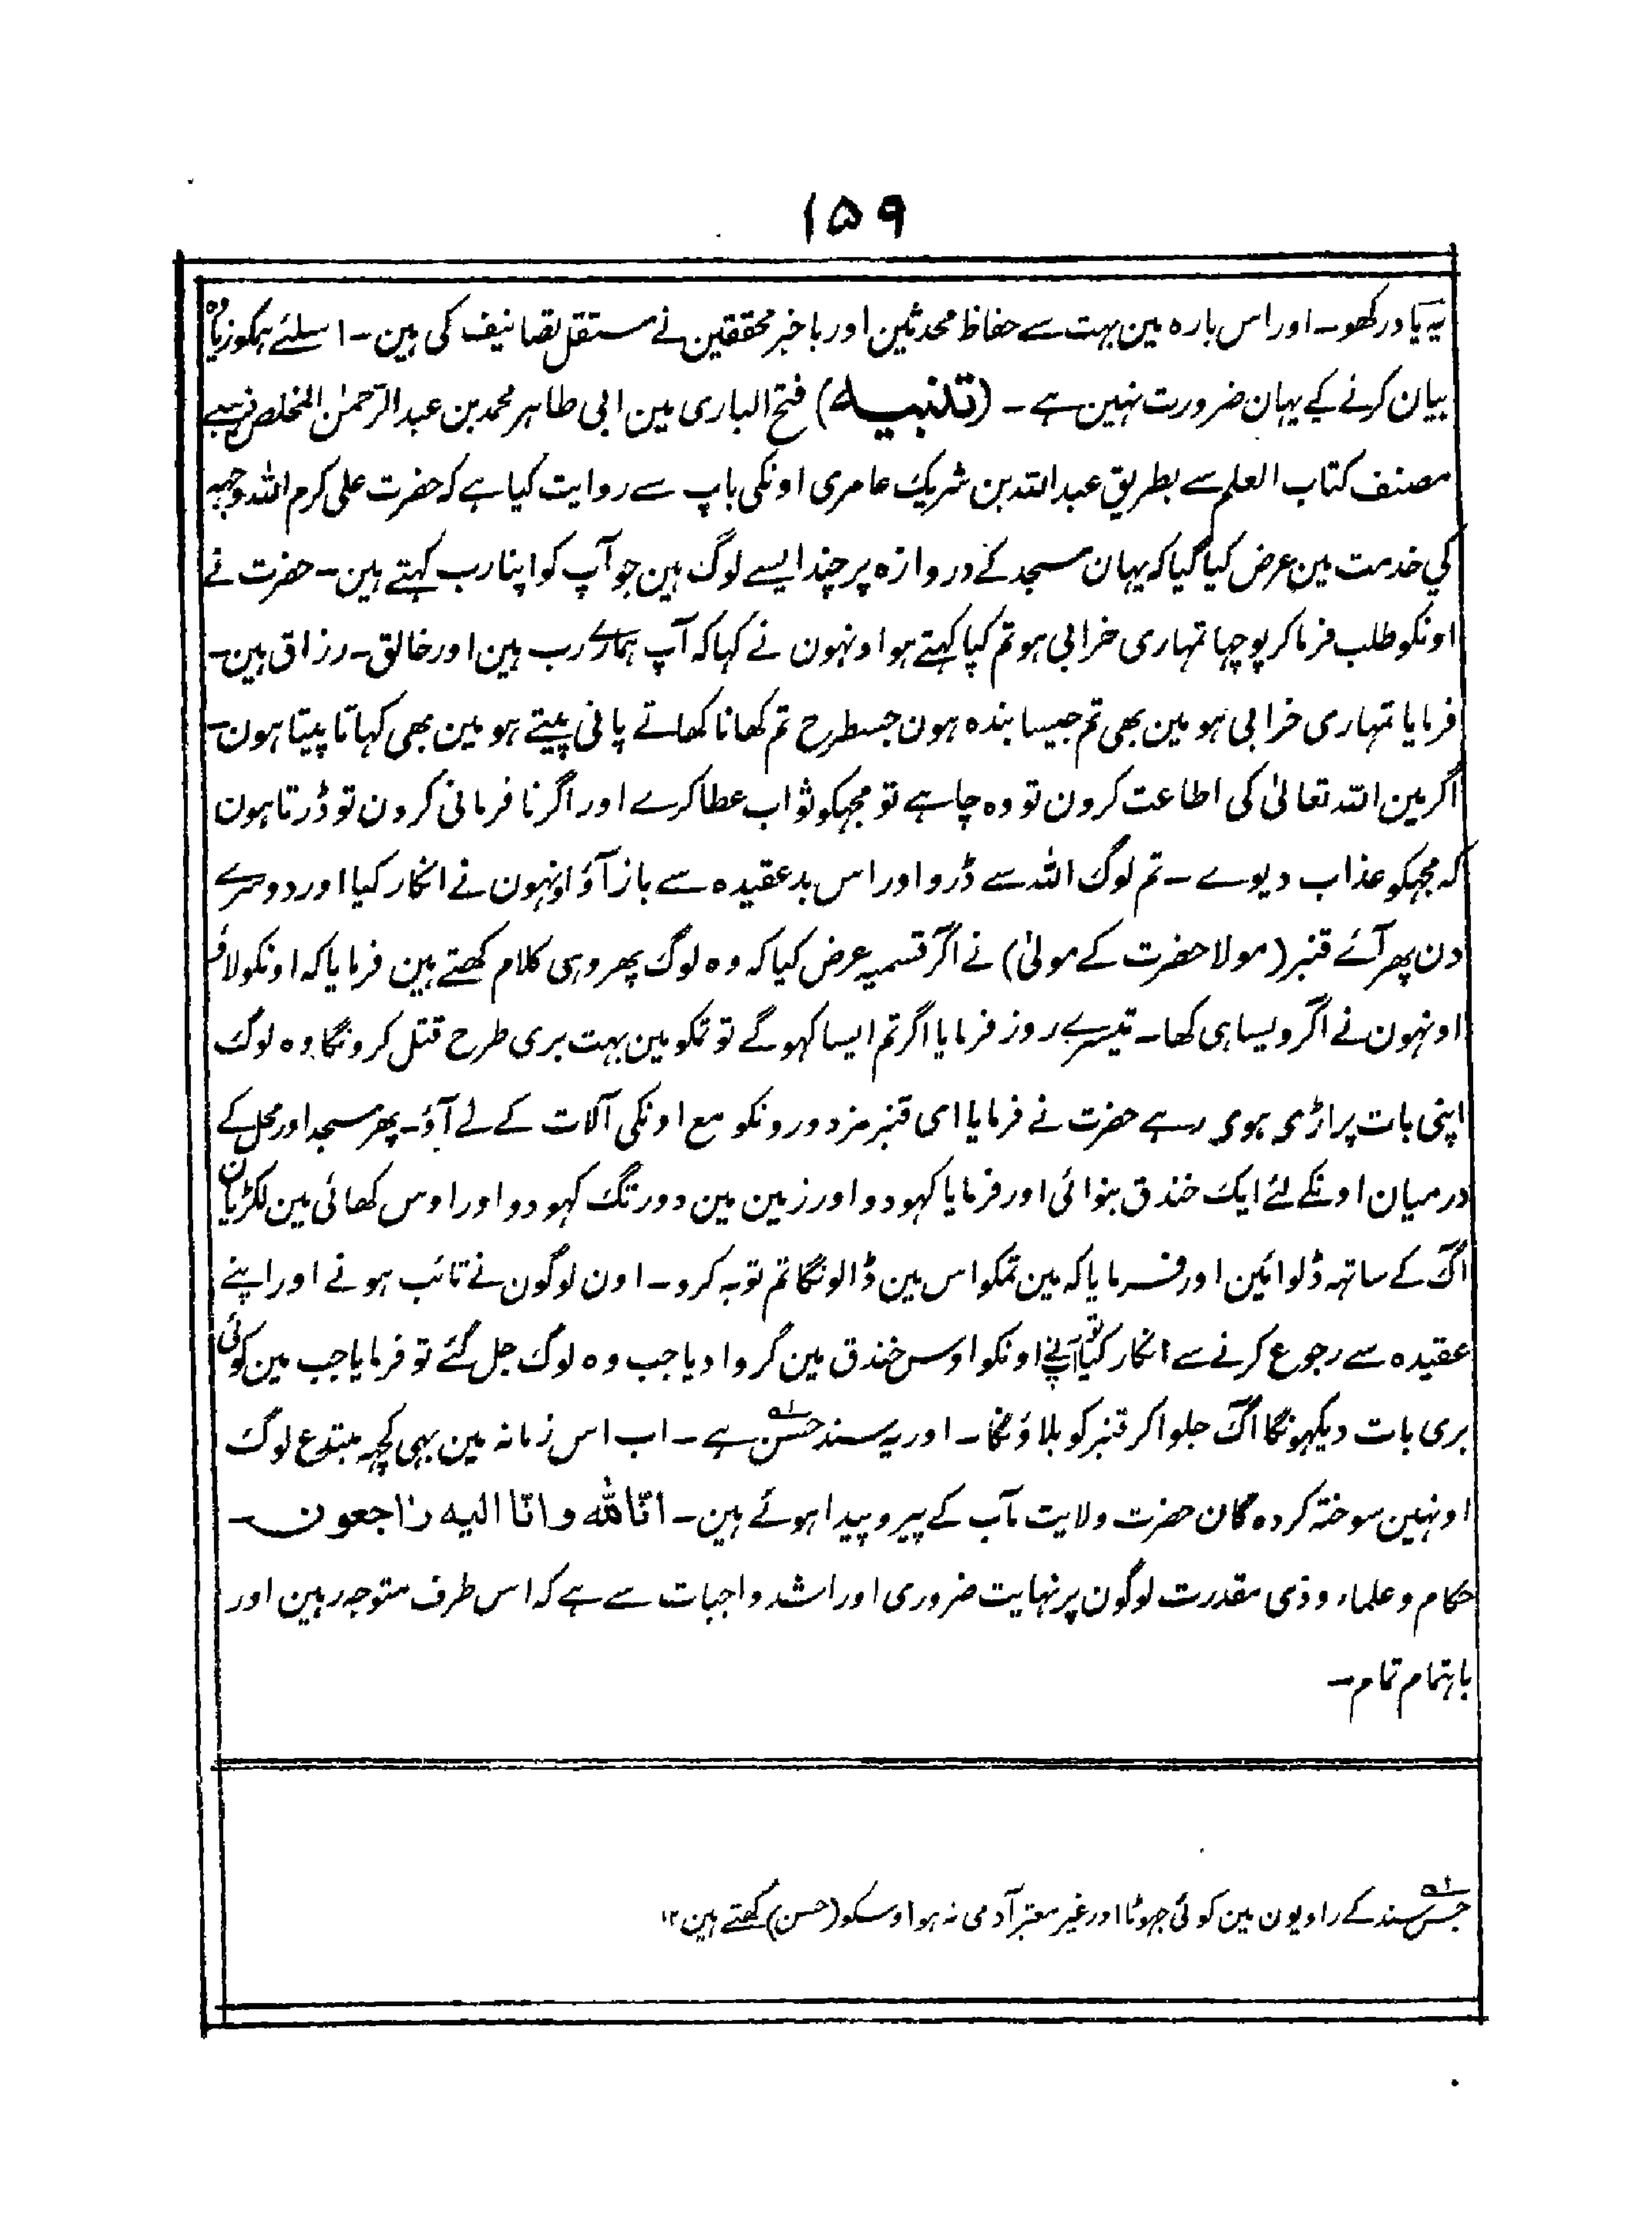 ۱۵۹
یہ یاد رکھو۔ اور اس بارہ مین بہت سے حفاظ محدثین اور باخبر محققین نے مستقل تصانیف کی ہین۔ اسلئے ہمکو زیادہ
بیان کرنے کے یہان ضرورت نہین ہے۔ (تنبیہ) فتح الباری مین ابی طاہر محمد بن عبد الرحمٰن المخلص ذہبی
مصنف کتاب العلم سے بطریق عبد اللہ بن شریک عامری اونکی باپ سے روایت کیا ہے کہ حضرت علی کرم اللہ وجہہ
کی خدمت مین عرض کیا گیا کہ یہان مسجد کے دروازہ پر چند ایسے لوگ ہین جو آپ کو اپنا رب کہتے ہین۔ حضرت نے
اونکو طلب فرما کر پوچہا تمہاری خرابی ہو تم کیا کہتے ہو اونہون نے کہا کہ آپ ہمارے رب ہین اور خالق۔ رزاق ہین۔
فرمایا تمہاری خرابی ہو مین بھی تم جیسا بندہ ہون جسطرح تم کھانا کھاتے پانی پیتے ہو مین بھی کہاتا پیتا ہون۔
اگر مین اللہ تعالیٰ کی اطاعت کرون تو وہ چاہے تو مجہکو ثواب عطا کرے اور اگر نافرمانی کرون تو ڈرتا ہون
کہ مجہکو عذاب دیوے۔ تم لوگ اللہ سے ڈرو اور اس بد عقیدہ سے باز آؤ اونہون نے انکار کیا اور دوسرے
دن پھر آئے قنبر (مولا حضرت کے مولیٰ) نے آکر قسمیہ عرض کیا کہ وہ لوگ پھر وہی کلام کھتے ہین فرمایا کہ اونکو لاؤ
اونہون نے آکر ویسا ہی کھا۔ تیسرے روز فرمایا اگر تم ایسا کہوگے تو تمکو مین بہت بری طرح قتل کرونگا وہ لوگ
اپنی بات پر اڑی ہوی رہے حضرت نے فرمایا ای قنبر مزدورونکو مع اونکی آلات کے لے آؤ۔ پھر مسجد اور محل کے
درمیان اونکے لئے ایک خندق بنوائی اور فرمایا کہودو اور زمین مین دور تک کہودو اور اوس کھائی مین لکڑیان
آگ کے ساتہہ ڈلوائین اور فرمایا کہ مین تمکو اس مین ڈالونگا تم توبہ کرو۔ اون لوگون نے تائب ہونے اور اپنے
عقیدہ سے رجوع کرنے سے انکار کیا تو آپنے اونکو اوس خندق مین گروا دیا جب وہ لوگ جل گئے تو فرمایا جب مین کوئی
بری بات دیکہونگا آگ جلوا کر قنبر کو بلاؤنگا۔ اور یہ سند حسن ہے۔ اب اس زمانہ مین بہی کچہہ مبتدع لوگ
اونہین سوختہ کردہ گان حضرت ولایت مآب کے پیرو پیدا ہوئے ہین۔ انّا للہ وانّا الیہ راجعون۔
حکام و علماء و ذی مقدرت لوگون پر نہایت ضروری اور اشد واجبات سے ہے کہ اس طرف متوجہ رہین اور
باہتمام تمام۔
جس سند کے راویون مین کوئی جہوٹا اور غیر معتبر آدمی نہ ہو اوسکو (حسن) کھتے ہین ۱۲